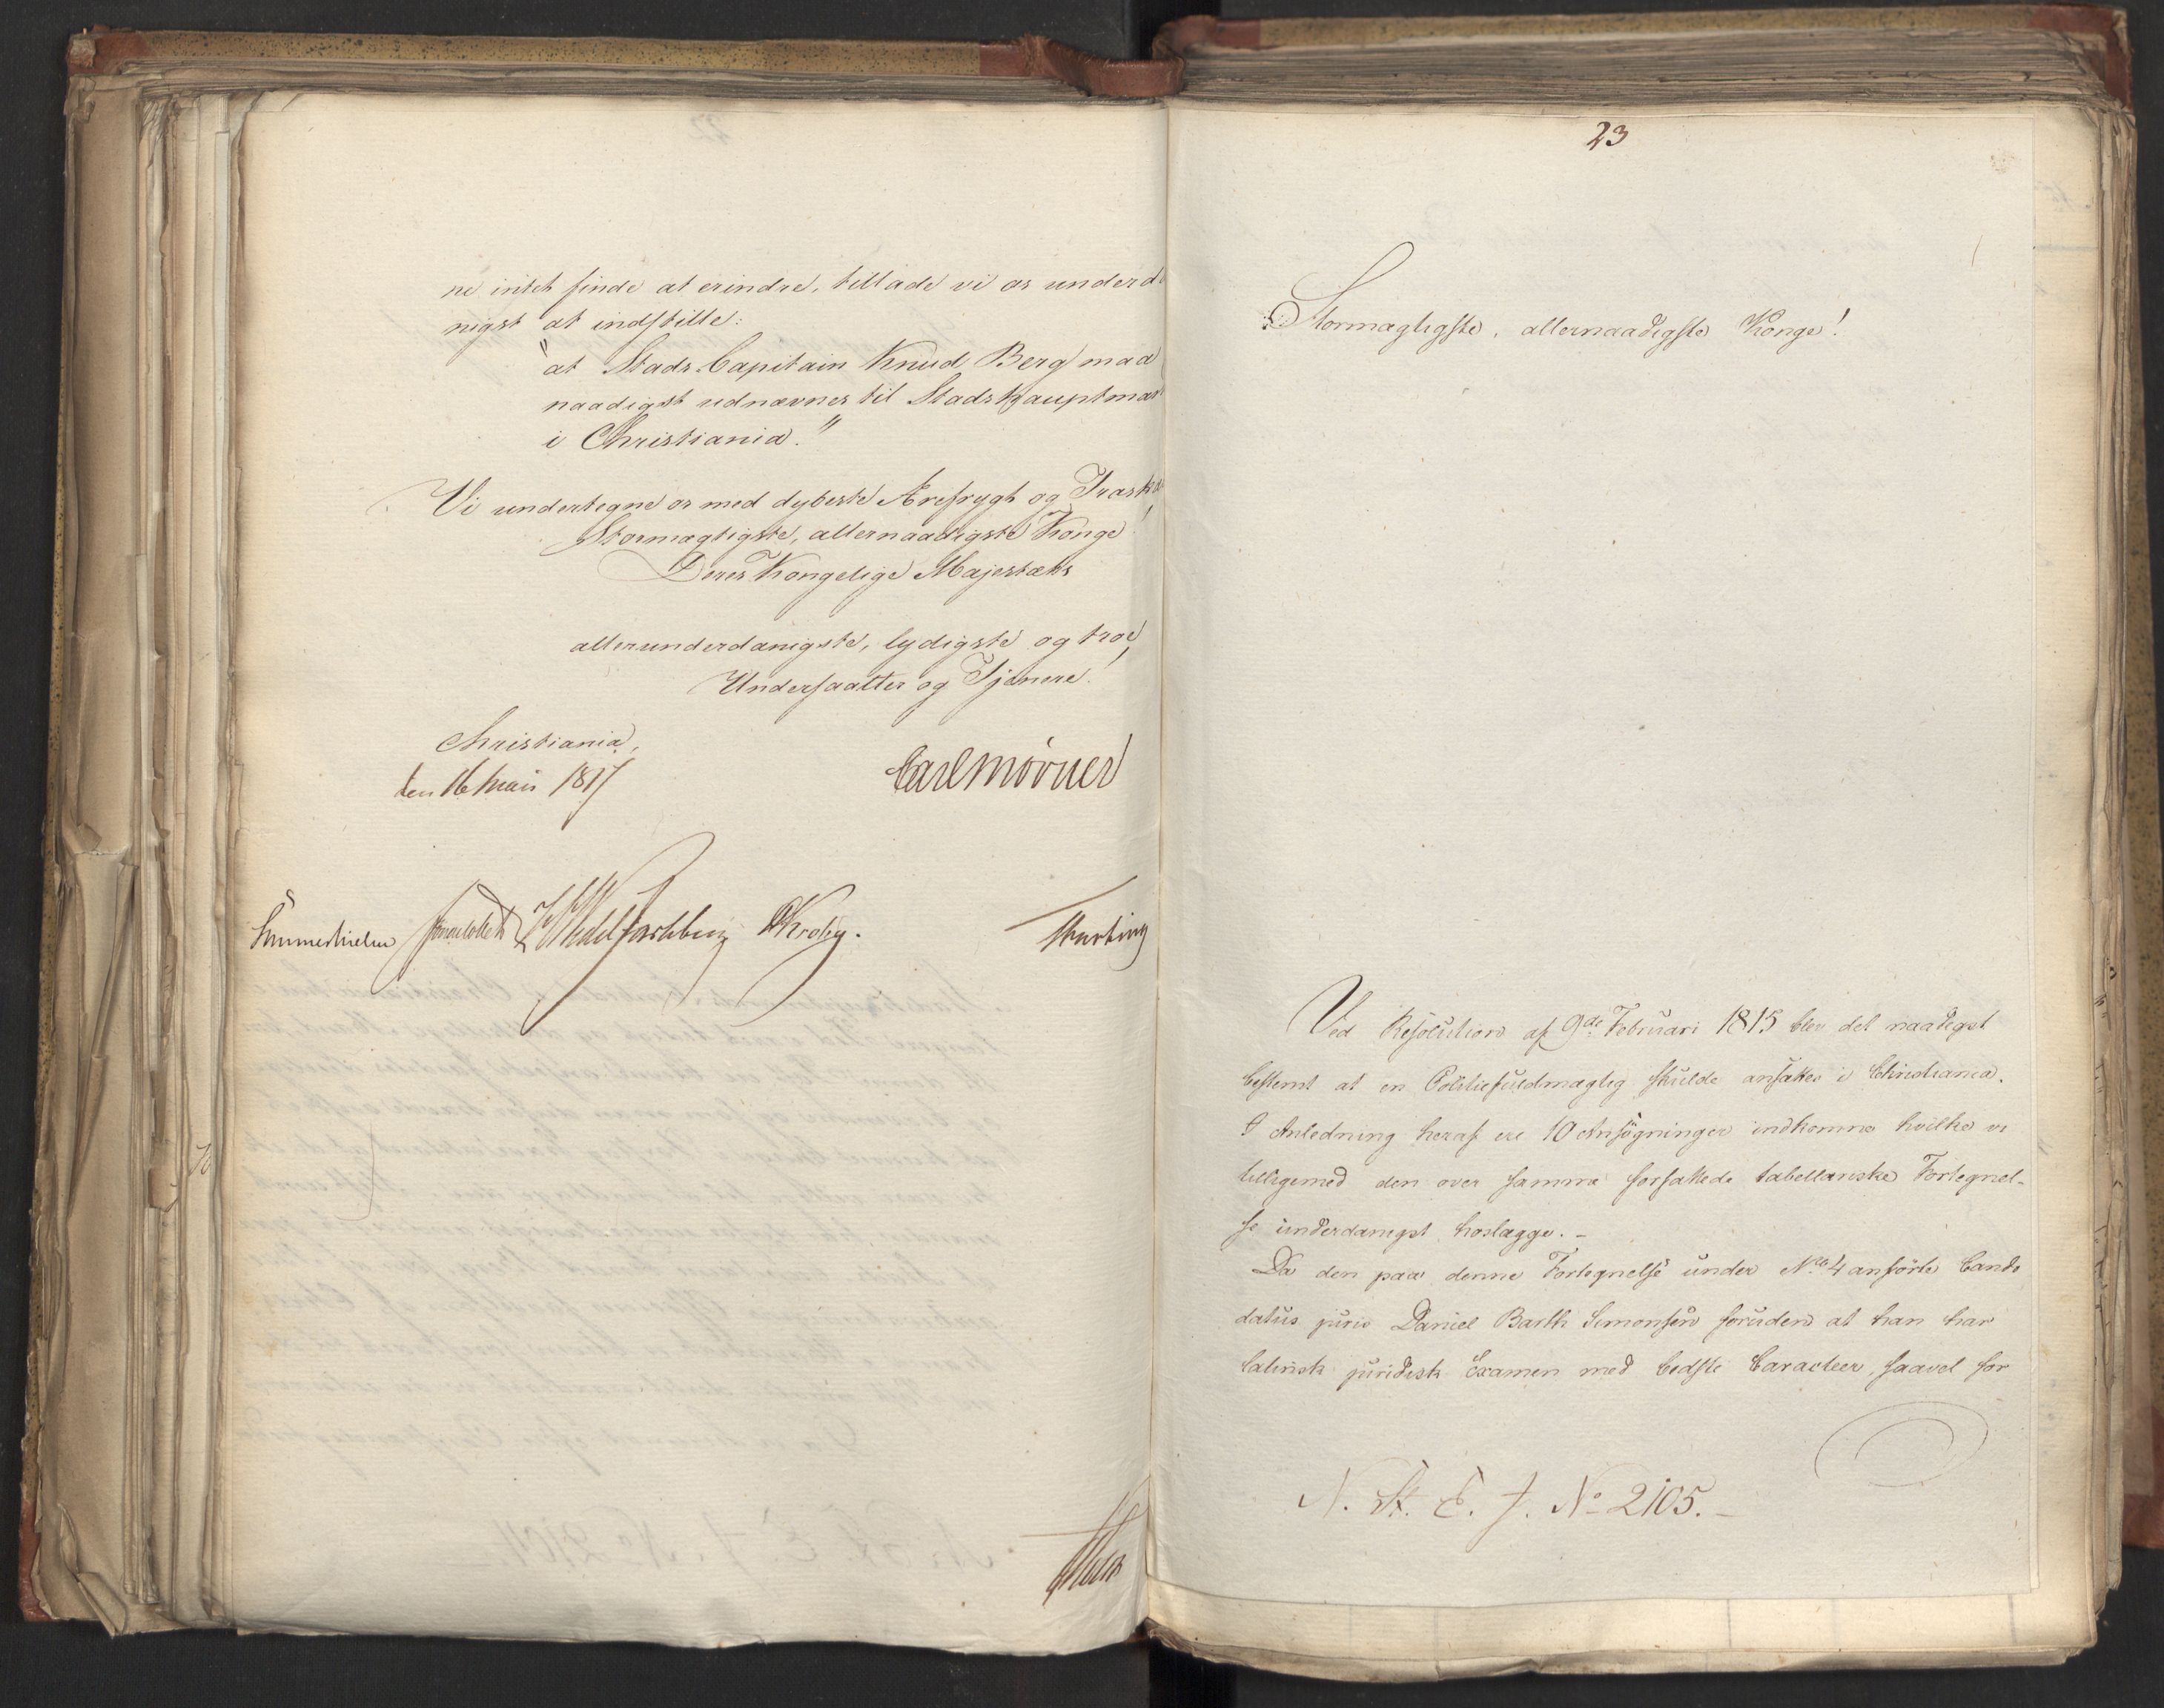 ne intet finde at erindre, tillade vi os underda
nigst at indstille:
"at Stads-Capitain Knud Berg maa
naadigst udnævnes til Stadshauptman
i Christiania."
Vi undertegne os med dybeste Ærefrygt og Troska
Stormægtigste, allernaadigste Konge!
Deres Kongelige Majestæts
allerunderdanigste, lydigste og troe
Undersaatter og Tjenere!
Christiania,
den 16 Mai 1817
Carl Mörner
Sommerhielm WedelJarlsberg Krohg.
Hersleb
23
Stormægtigste, allernaadigste Konge!
Ved Resolution af 9de Februari 1815 blev det naadigst
bestemt at en Politiefuldmægtig skulde ansættes i Christiania.
I Anledning heraf ere 10 Ansögninger indkomne hvilke vi
tilligemed den over samme forfattede tabellariske Fortegnel-
se underdanigst hoslægge. -
Da den paa denne Fortegnelse under No 4 anförte Candi
datus juris Daniel Barth Simonsen foruden at han har
Latinsk juridisk Examen med bedste Caracteer, saavel for
N. St. E. J. No 2105. -